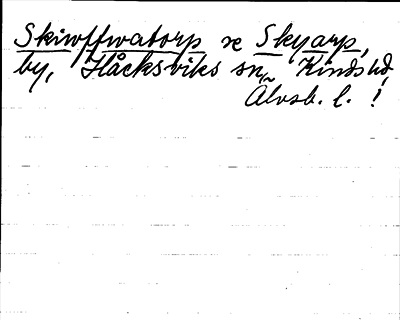 Skiwffwatorp se Skyarp,
by, Håcksviks sn, Kinds hd,
Älvsb. l. !